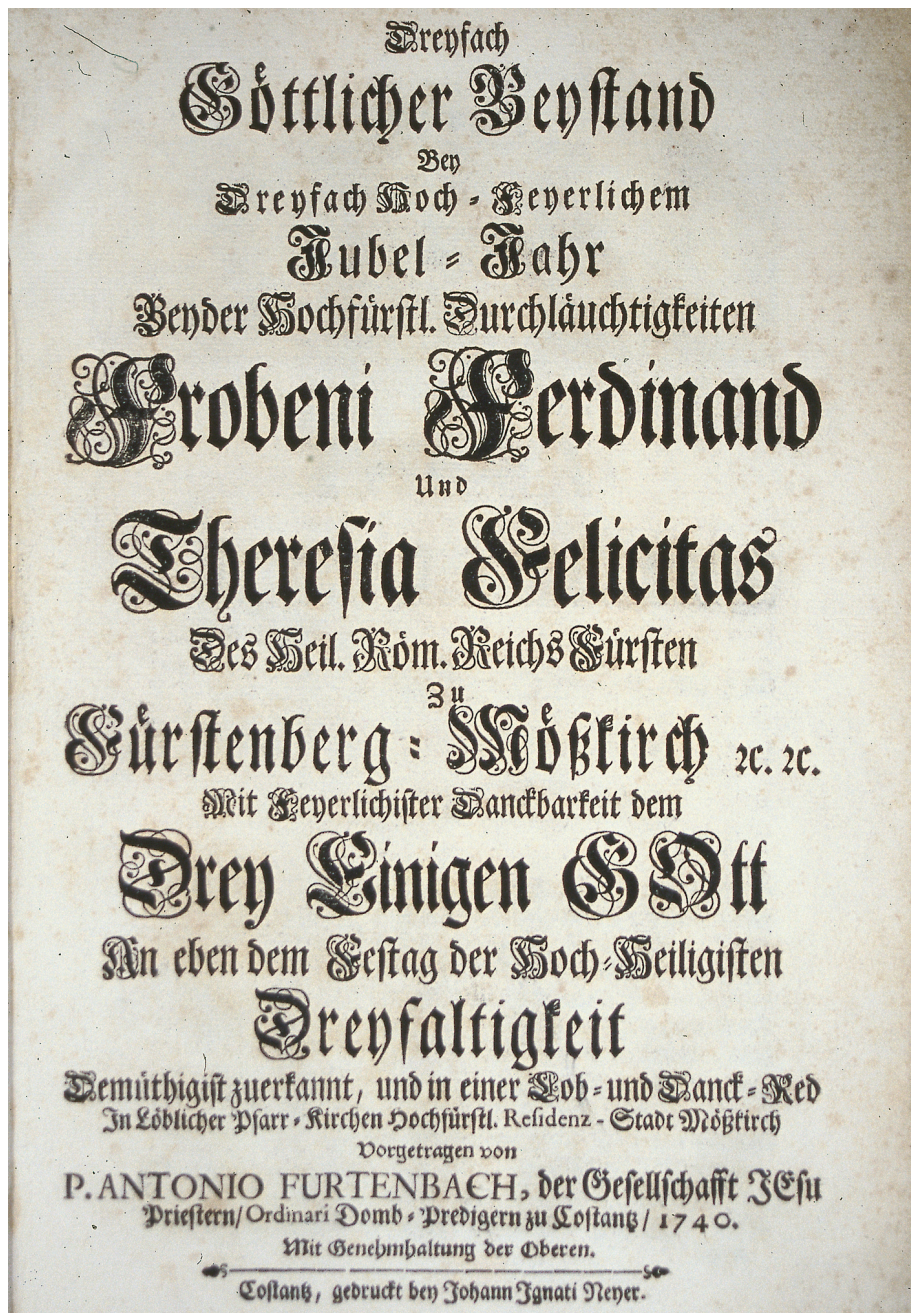 Dreyfach
Göttlicher Beystand
Bey
Dreyfach Hoch-Feyerlichem
Jubel-Jahr
Beyder Hochfürstl. Durchläuchtigkeiten
Frobeni Ferdinand
Und
Theresia Felicitas
Des Heil. Röm. Reichs Fürsten
Zu
Fürstenberg-Mößkirch ꝛc. ꝛc.
Mit Feyerlichister Danckbarkeit dem
Drey Einigen GOtt
An eben dem Festag der Hoch-Heiligisten
Dreyfaltigkeit
Demüthigist zuerkannt, und in einer Lob- und Danck-Red
In Löblicher Pfarr-Kirchen Hochfürstl. Residenz-Stadt Mößkirch
Vorgetragen von
P. ANTONIO FURTENBACH, der Gesellschafft JEsu
Priestern/ Ordinari Domb-Predigern zu Costantz/ 1740.
Mit Genehmhaltung der Oberen.
Costantz, gedruckt bey Johann Ignati Neyer.